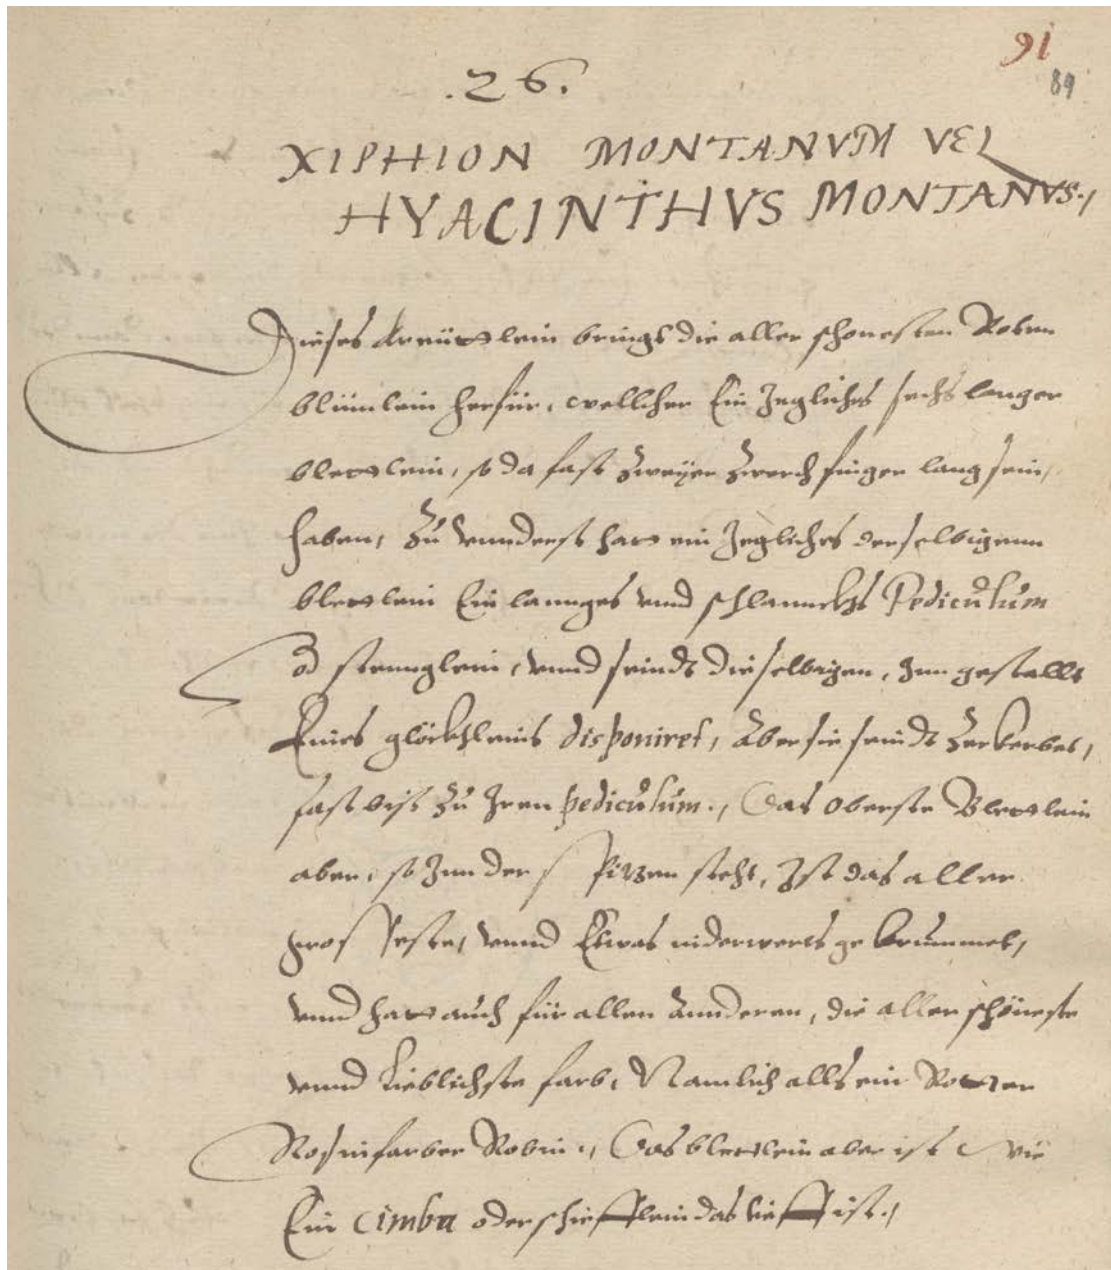 91
89
.26.
XIPHION MONTANVM VEL
HYACINTHVS MONTANVS./
Dieses kreüttlein bringt die aller schonesten Roten
blümlein herfür, wellcher Ein Jegliches sechs langer
blettlein, so da fast zweyer zwerch finger lang sein,
haben, Zu vnnderst hatt ein Jegliches derselbigenn
blettlein Ein lannges vnnd schlannckhs Pediculum
od stennglein, vnnd seindt dieselbigen, Inn gestallt
Eines glöckhleins disponiret, Aber sie seindt Zerkerbet,
fast biß zu Iren pediculum., Das oberste Blettlein
aber, so Inn der Spitzen steht, Ist das aller
grosseste, vnnd Etwas niderwerts gekrummet,
vnnd hatt auch für allen Annderen, die allerschöneste
vnnd Lieblichste farb, Namlich alls ein Rotter
Rosinfarber Robin., Das blettlein aber ist wie
Ein cimba oder schiefflein das tieff ist./